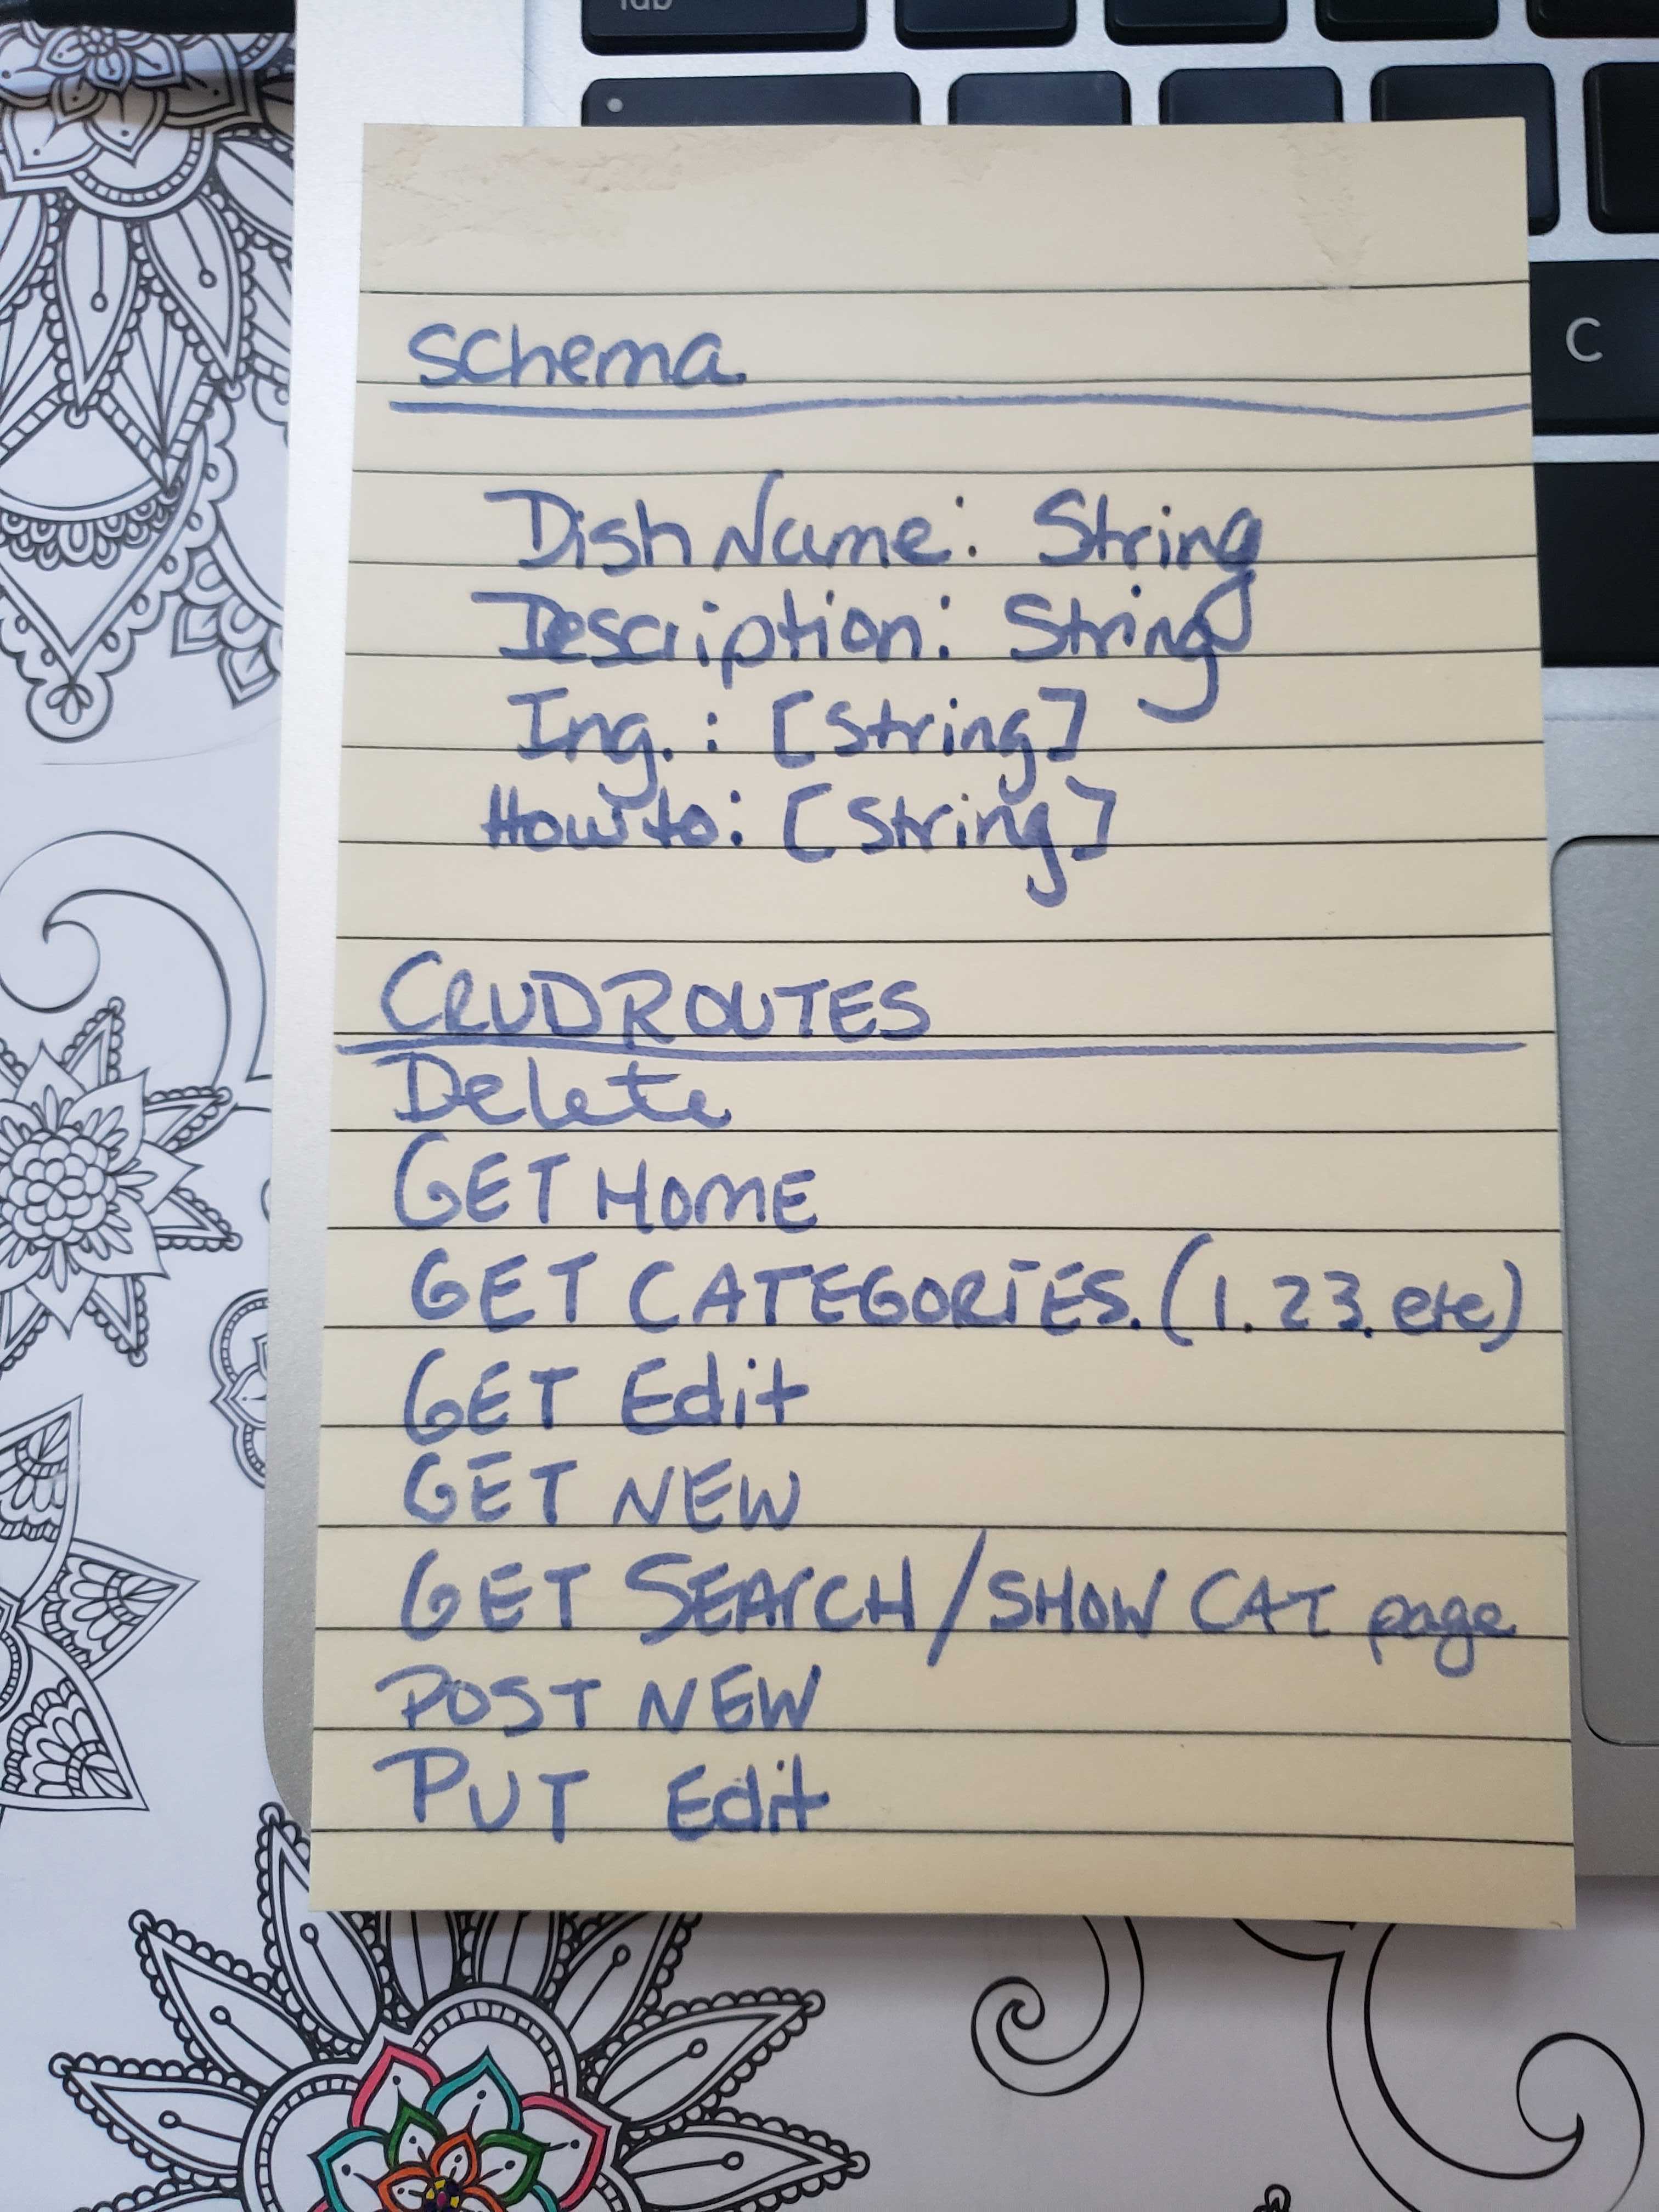 tab
C
Schema
Dish Name: String
Description: String
Ing.: [String]
How to: [String]
CRUD ROUTES
Delete
GET HOME
GET CATEGORIES. (1. 2 3. etc)
GET Edit
GET NEW
GET SEARCH/SHOW CAT page
POST NEW
PUT Edit